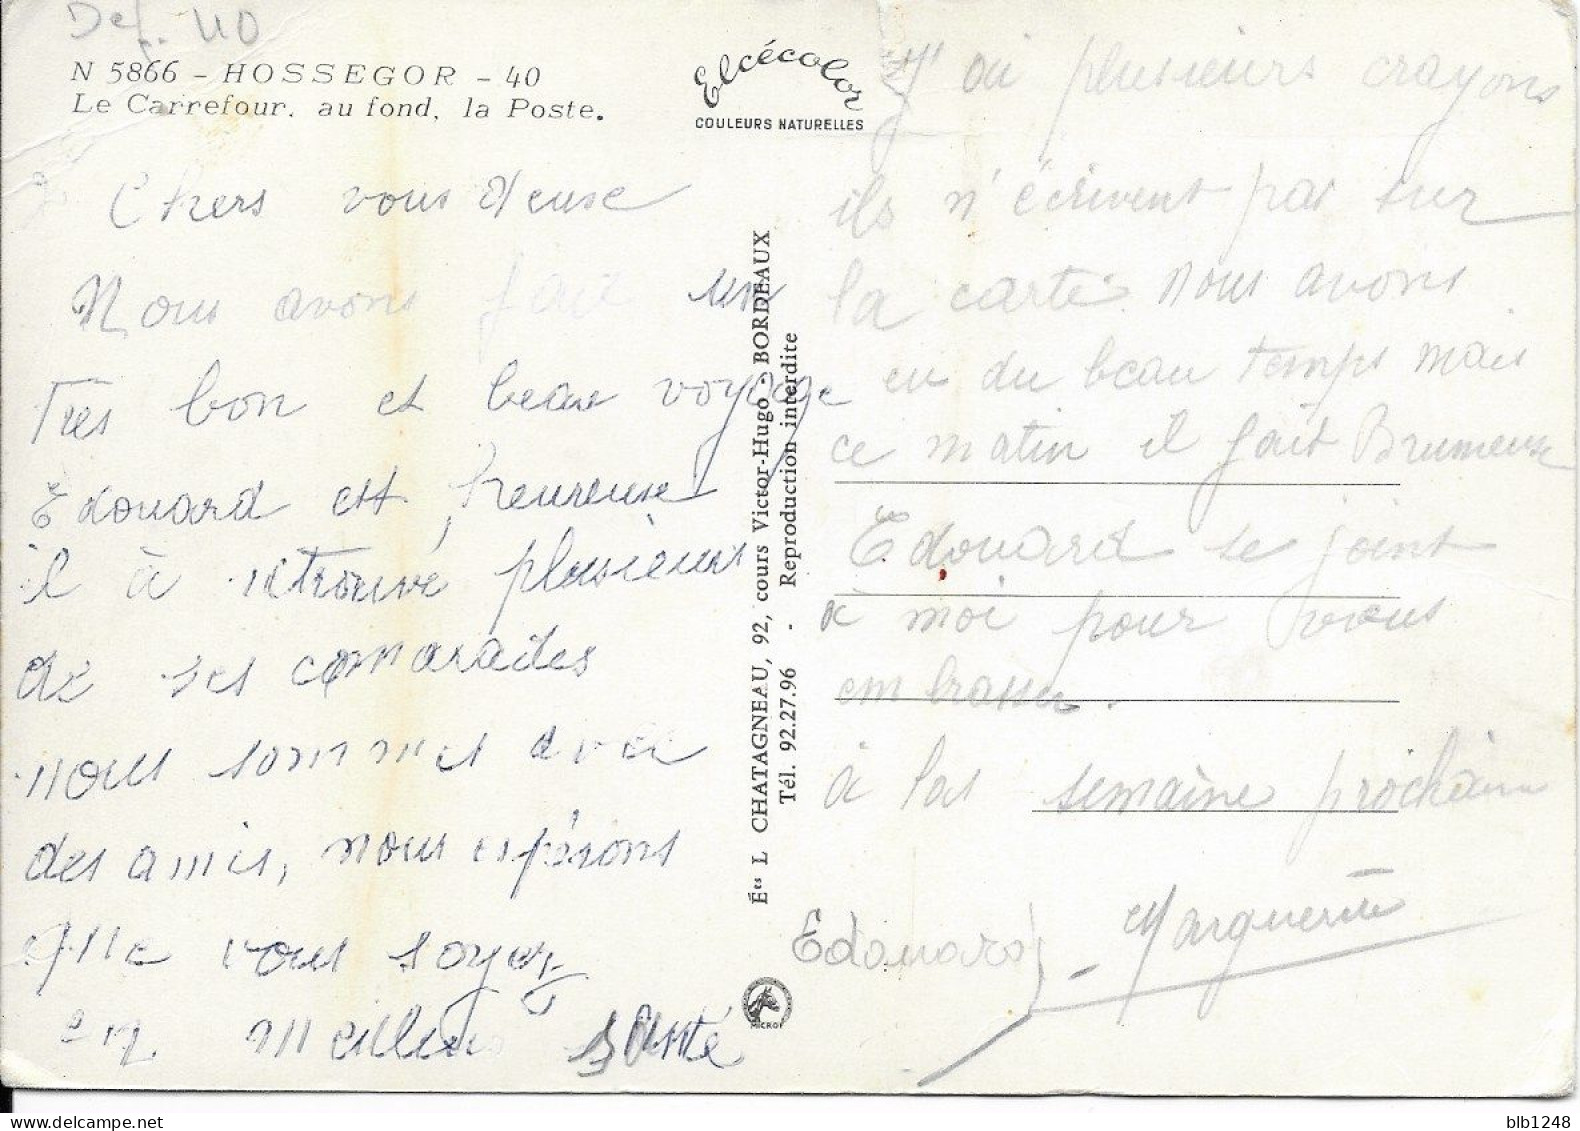 Def. 40
N 5866 - HOSSEGOR - 40
Le Carrefour, au fond, la Poste.
Elcécolor
COULEURS NATURELLES
Chers vous deuse
Nous avons fait un
Tres bon et beau voyage
Edouard est heureuse
il à retrouvé plusieurs
de ses comarades
nous sommes avec
des amis, nous espérons
que vous soyez
en meilleur santé
Éts L CHATAGNEAU, 92, cours Victor-Hugo - BORDEAUX
Tél. 92.27.96 - Reproduction interdite
MICRO
J'ai plusieurs crayons
ils n'écrivent pas sur
la carte. Nous avons
eu du beau temps mais
ce matin il fait Brumeuse
Edouard se joint
à moi pour vous
embrasser.
à las semaine prochaine
Edouard - Marguerite
blb1248